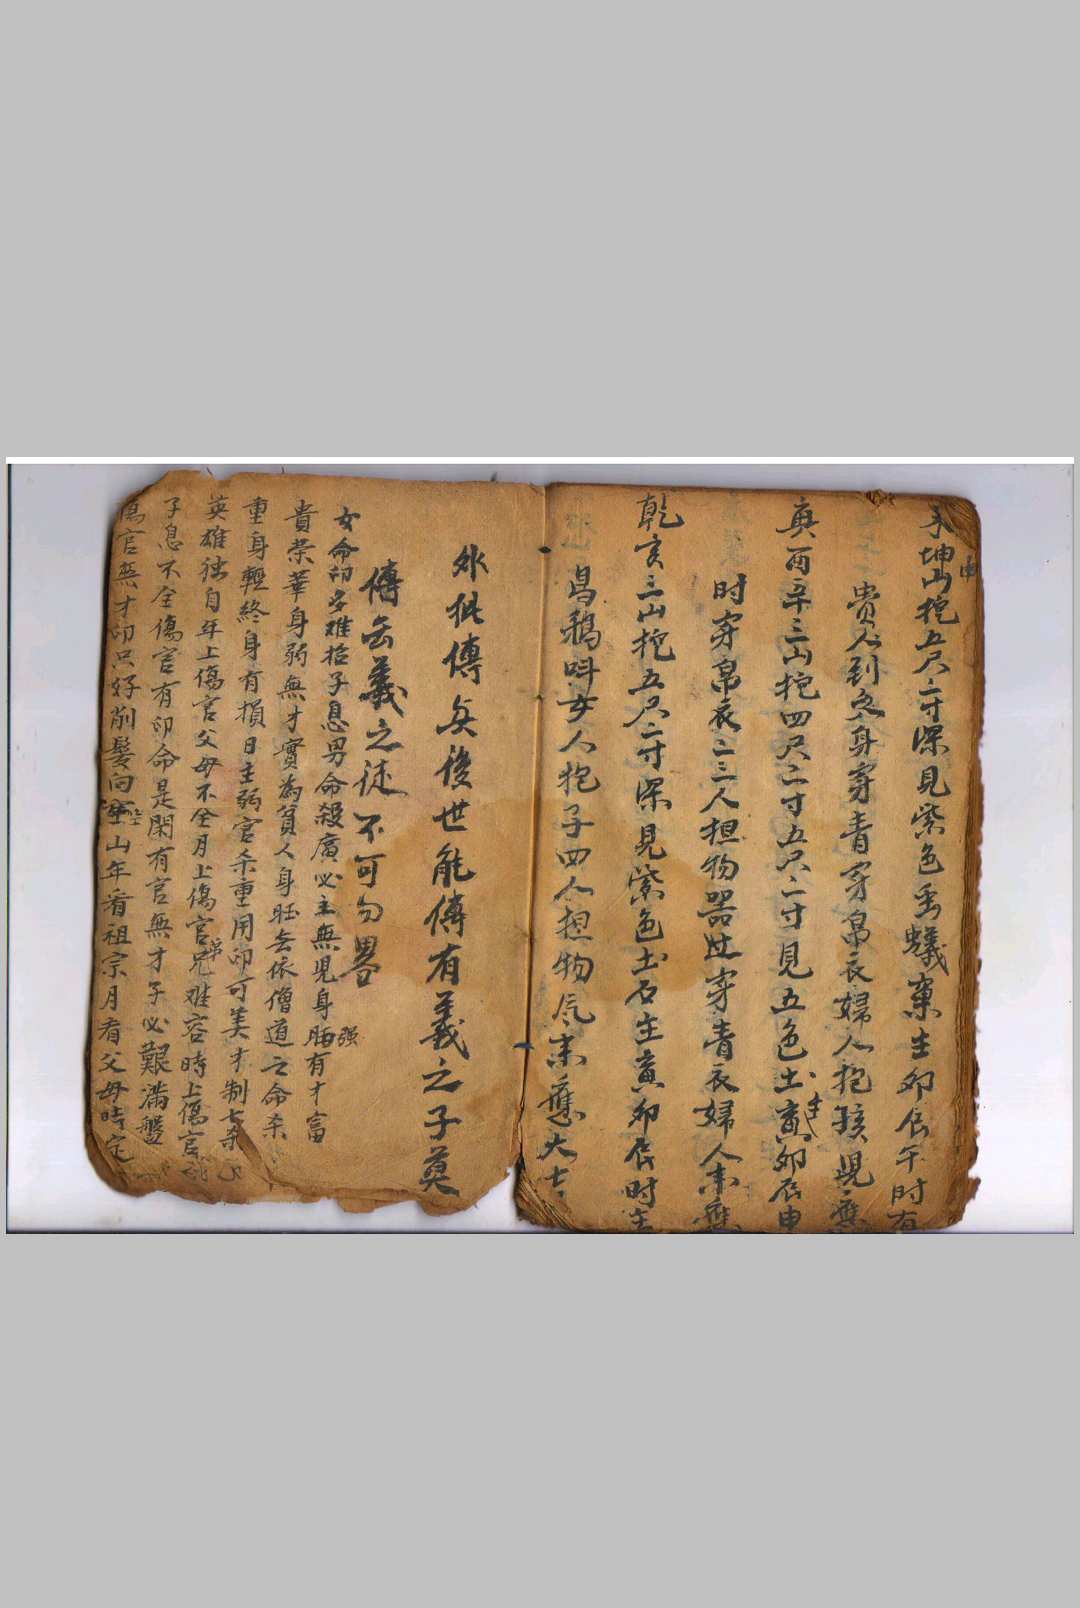 坤山挖五尺二寸深見紫色虫蟻窠生卯辰午时有
申
貴人到之身穿青穿帛衣婦人抱孩児應
庚酉辛三山挖四尺二寸五尺二寸見五色土寅卯辰申
时穿帛衣二三人担物器皿穿青衣婦人來應
乾亥三山挖五尺二寸深見紫色土石生寅卯辰时生
昌鵝呌女人抱子四人担物氏來應大吉
外批傳矣後世能傳有義之子莫
傳無義之徒不可勿畧
女命印多难招子息男命殺廣必主無児身旺有才富
强
貴荣華身弱無才實為貧人身旺無依僧道之命杀
重身輕終身有損日主弱官杀重用印可美才制七杀
英雄独自年上傷官父母不全月上傷官兄难容時上傷官
弟
子息不全傷官有印命是閑有官無才子必艱滿盤
傷官無才印只好削髪向空山年看祖宗月看父母時定